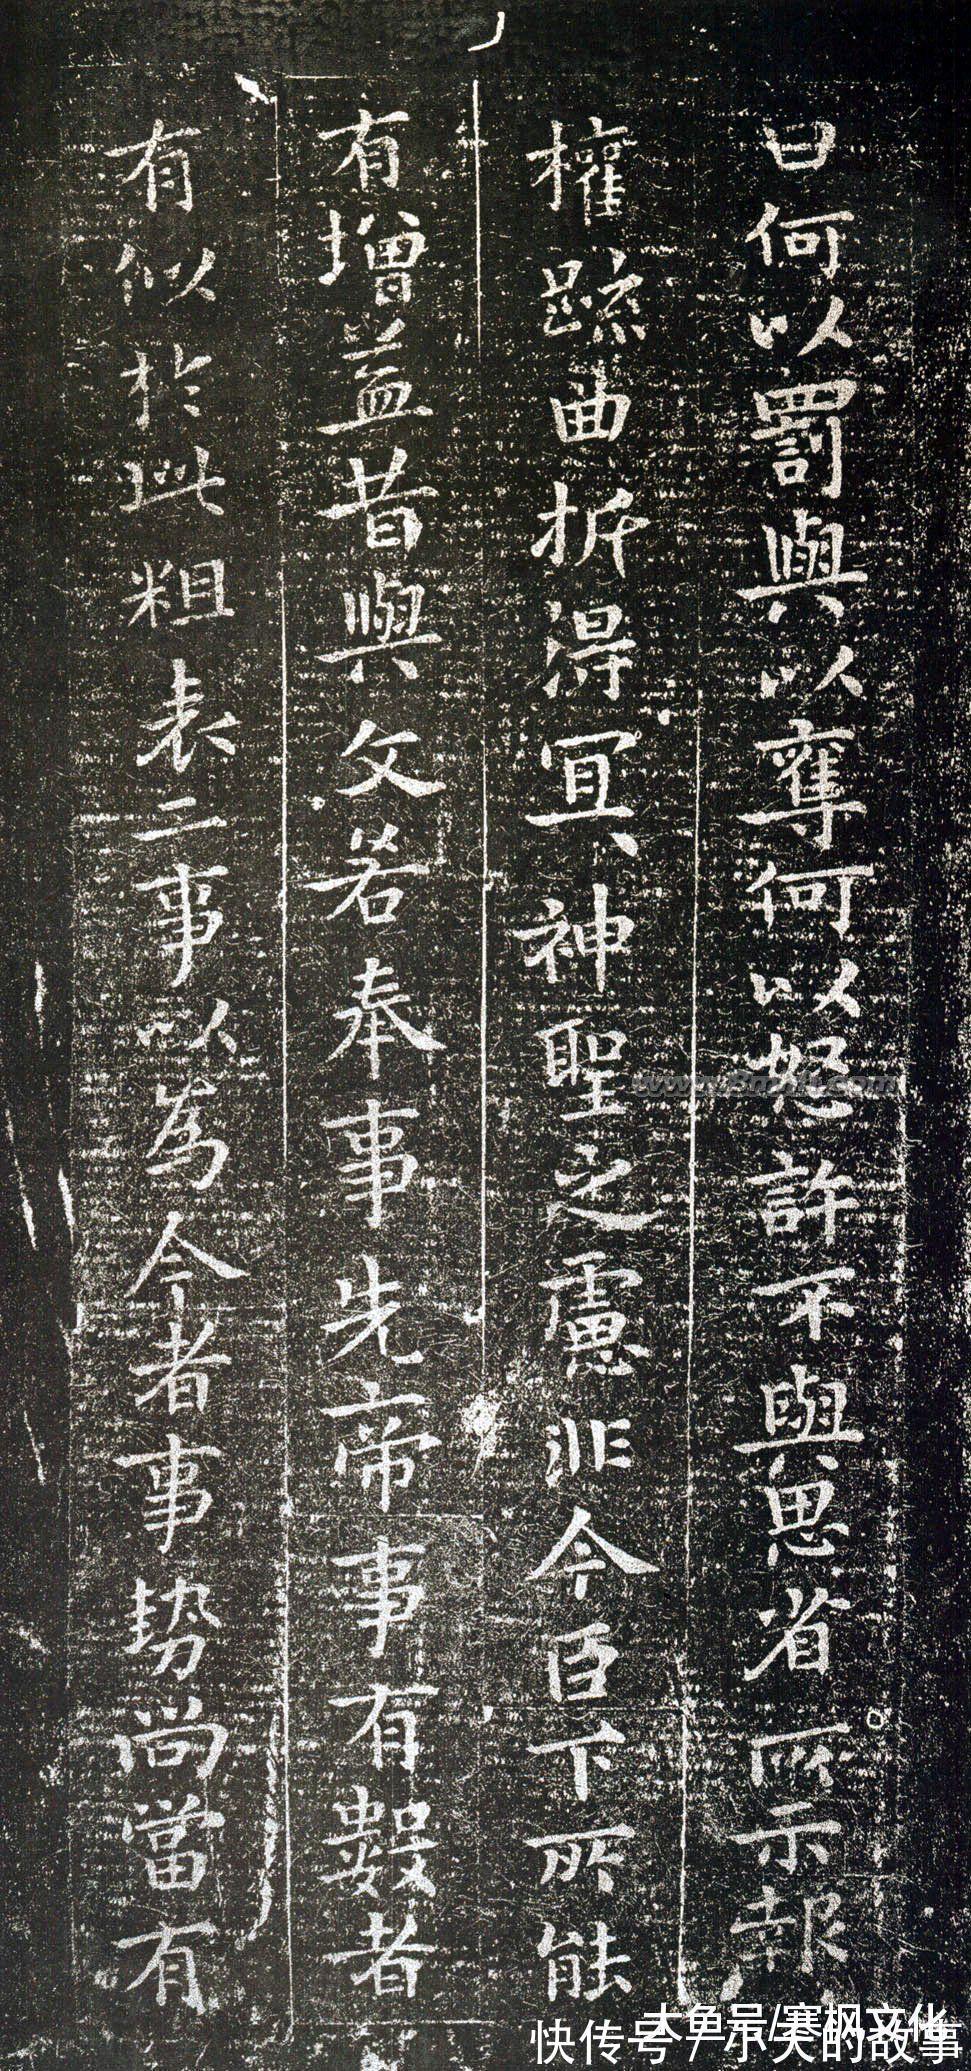 曰何以罰與以奪何以怒許不與思省所示報
權疏曲折得宜、神聖之慮非今臣下所能
有增益昔與文若奉事先帝事有數者
有似於此粗表二事以為今者事勢尚當有
大鱼号/寒枫文化
快传号 / 小天的故事